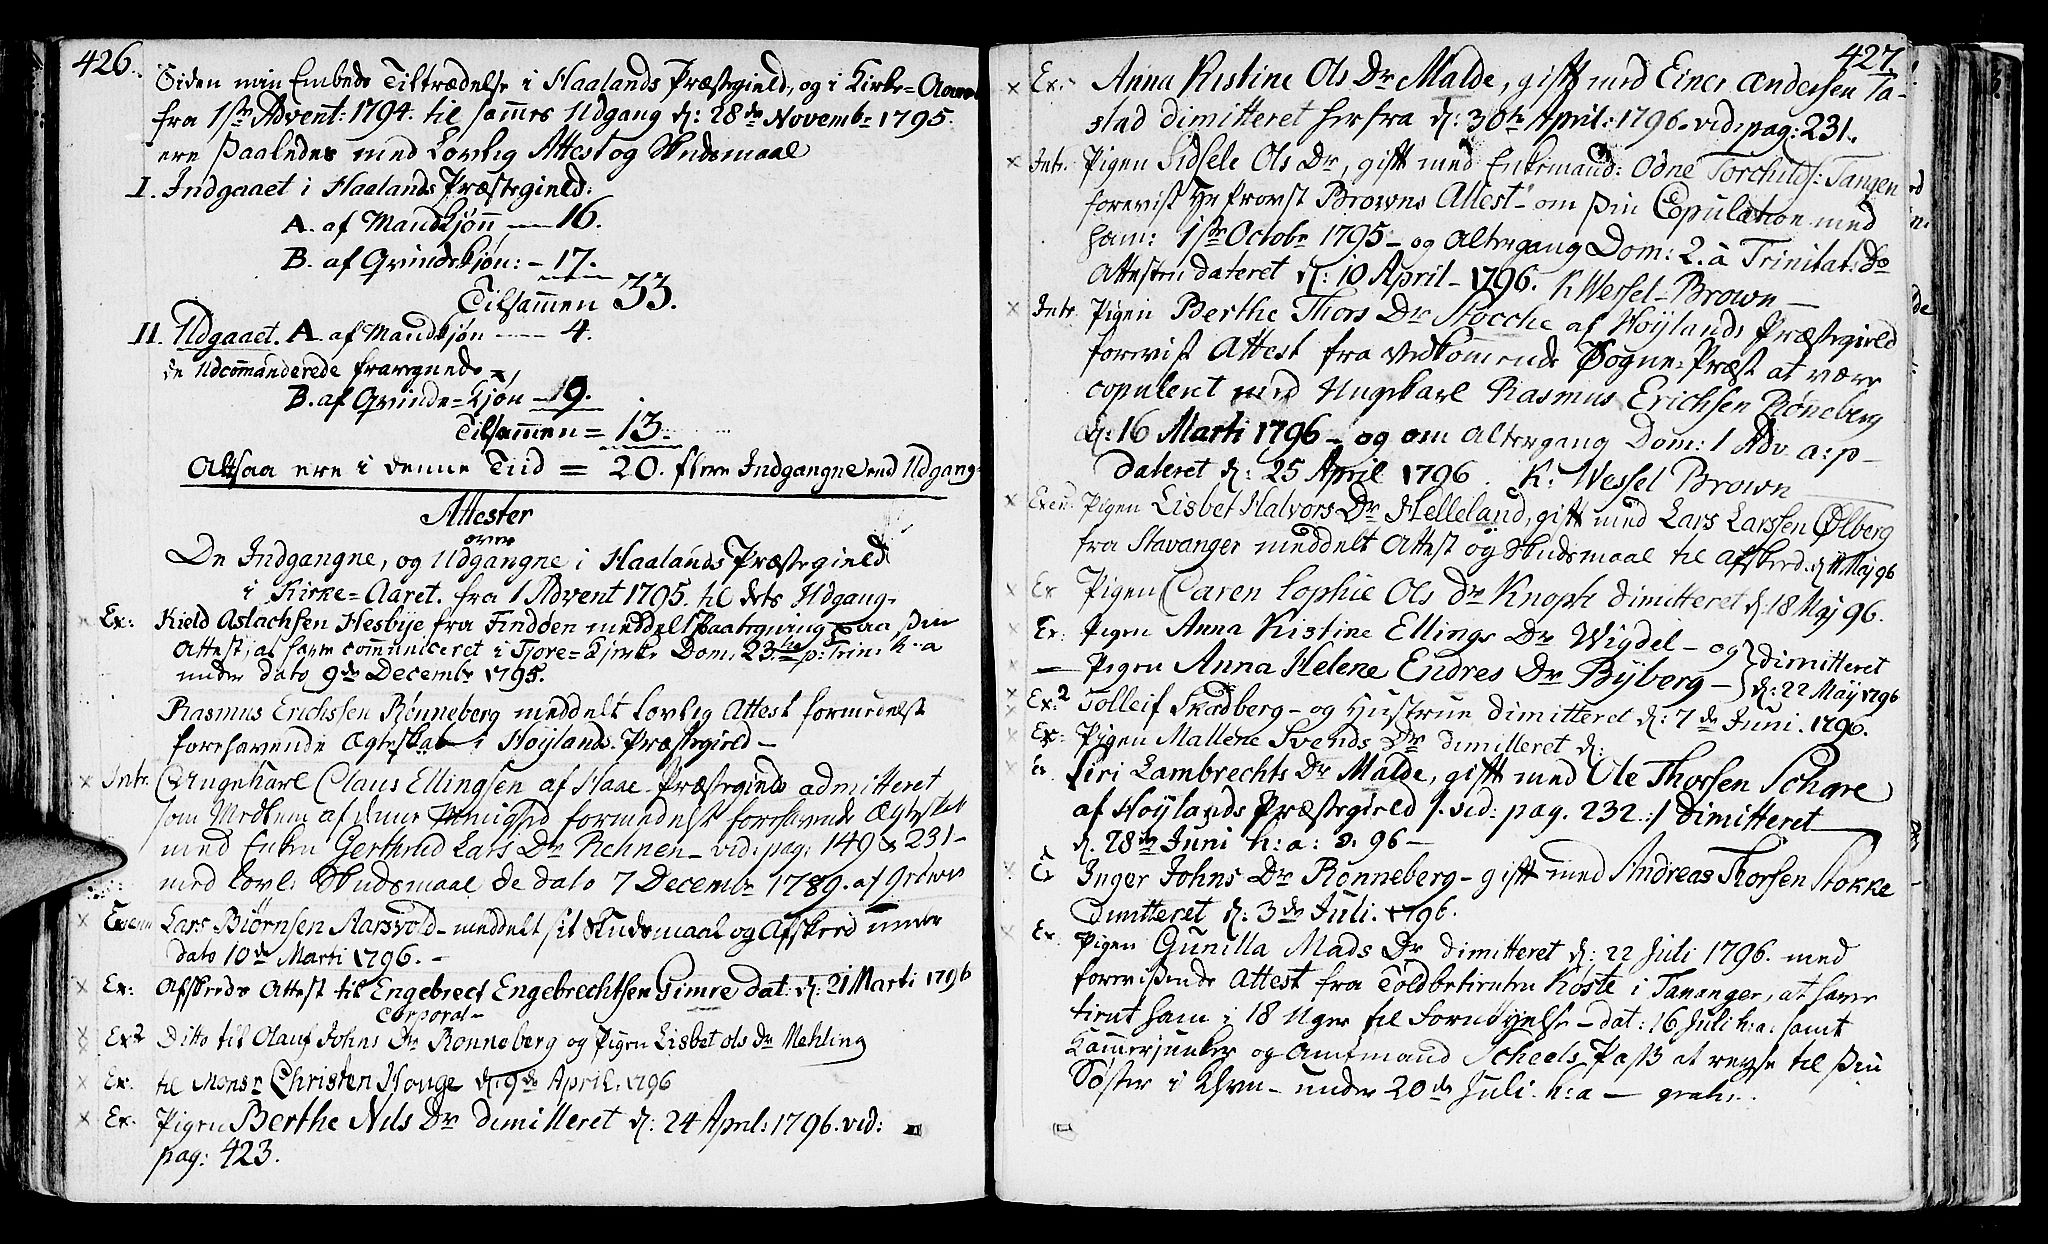 426.
Siden min Embeds Tiltrædelse i Haalands Præstegield, og i Kirke=Aaret
fra 1ste Advent: 1794. til sammes Udgang d: 28de Novembr 1795.
ere saaledes med Lovlig Attest og Skudsmaal
I. Indgaaet i Haalands Præstegield:
A. af Mandkjøn — 16.
B. af Qvindekjøn: — 17.
Tilsammen 33.
II. Udgaaet. A. af Mandkjøn — 4.
de Udcommanderede fraregnede
B. af Qvinde=Kjøn — 9.
Tilsammen = 13.
Altsaa ere i denne Tiid = 20. flere Indgangne end Udgang:
Attester
over
De Indgangne, og Udgangne i Haalands Præstegield
i Kirke=Aaret. fra 1 Advent 1795. til dets Udgang.
Ex: Kield Aslachsen Hesbye fra Findøen meddelt Paategning paa sin
Attest, at have communiceret i Tjore=Kjerke Dom. 23de p: Trin. h. a
under dato 9de Decembr 1795.
Rasmus Erichsen Rønneberg meddelt Lovlig Attest formedelst
forehavende Ægteskab i Høylands Præstegield —
Intr. Ungekarl Claus Ellingsen af Haae Præstegield admitteret
som Medlem af denne Menighed formedelst forehavende Ægteskab
med Enken Gerthrud Lars Dr Rehnen — vid: pag: 149 & 231 —
med Lovl: Skudsmaal de dato 7 Decembr 1789. af
Exeun Lars Biørnsen Aarsvold — meddelt sit Skudsmaal og Afskeed under
dato 10de Marti 1796. —
Ex: Afskeeds Attest til Engebrect Engebrechtsen Gimre dat: d: 21 Marti 1796
Corporal —
Ex2 Ditto til Olauf Johns Dr Rønneberg og Pigen Lisbet Ols Dr Mehling
Ex. til Monsr Christen Houge d: 9de April. 1796
Ex. Pigen Berthe Nils Dr dimitteret d: 24 April: 1796. vid:
pag: 423.
427.
Ex. Anna Kistine Ols Dr Malde, gift med Einer Andersen Ta-
stad dimitteret herfra d: 30te April: 1796. vid: pag: 231.
Intr. Pigen Sidsele Ols Dr, gift med Enkemand: Odne Torchilds: Tangen
foreviist Hr Provst Browns Attest — om sin Copulation med
ham: 1ste Octobr 1795 — og Altergang Dom: 2. a Trinitat: Do
Attesten dateret d: 10 April — 1796. K Wessel — Brown —
Intr. Pigen Berthe Thors Dr Stocche af Høylands Præstegield
foreviist Attest fra vedkommende Sogne=Præst at være
copuleret med Ungekarl Rasmus Erichsen Røneberg
d: 16 Marti 1796 — og om Altergang Dom: 1 Adv. a: p —
dateret d: 25 April 1796. K: Wessel Brown
Exeu: Pigen Lisbet Halvors Dr Helleland, gift med Lars Larssen Ølberg
fra Stavanger meddelt Attest og Skudsmaal til Afskeed. d 11 Maj 96
Ex Pigen Caren Sophie Ols Dr Knoph dimitteret d: 18 Maj 96.
Ex: Pigen Anna Kistine Ellings Dr Wigdel — og } dimitteret
— Pigen Anna Helene Endres Dr Byberg — } d: 22 Maij 1796
Ex:2 Tolleif Skadberg — og Hustrue dimitteret d: 7de Juni. 1796.
Ex: Pigen Mallene Svends Dr dimitteret d:
Siri Lambrechts Dr Malde, gift med Ole Thorsen Schare
af Høylands Præstegield /. vid: pag. 232.:/ dimitteret
d. 28de Juni h: a: 96 —
Inger Johns Dr Rønneberg — gift med Andreas Thorsen Stokke
dimitteret d: 3de Juli. 1796.
Ex. Pigen Gunilla Mads Dr dimitteret d: 22 Juli 1796. med
forevisende Attest fra Toldbetienten Koste i Tananger, at have
tient ham i 18 Uger til Fornøyelse — dat: 16 Juli h: a: samt
Kammerjunker og Amtmand Scheels Pass at reyse til sin
Søster i Khvn — under 20de Juli. h: a — gratis.